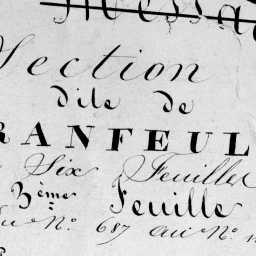 Section
dite de
RANFEUL
Six Feuilles
3ème Feuille
du No. 687 au No.